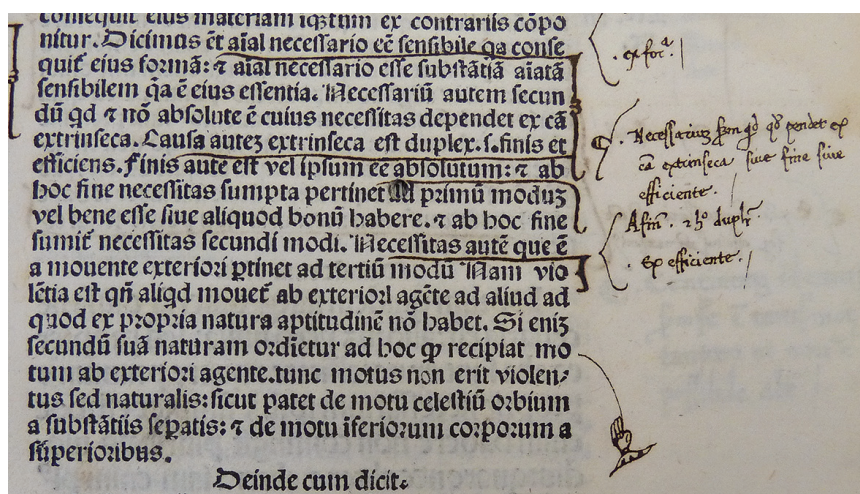 consequit eius materiam iqstum ex contrariis cōpo
nitur. Dicimus ēt aīal necessario eē sensibile qa conse
quit̄ eius formā: ⁊ aīal necessario esse substātiā aīatā
sensibilem q̄a ē eius essentia. Necessariū autem secun
dū qd ⁊ nō absolute ē cuius necessitas dependet ex cā
extrinseca. Causa auteꝫ extrinseca est duplex. s. finis et
efficiens. Finis autē est vel ipsum eē absolutum: ⁊ ab
hoc fine necessitas sumpta pertinet Ad primū moduꝫ
vel bene esse siue aliquod bonū habere. ⁊ ab hoc fine
sumit̄ necessitas secundi modi. Necessitas autē que ē
a mouente exteriori ꝑtinet ad tertiū modū Nam vio
lētia est qn̄ aliqd mouet̄ ab exteriori agēte ad aliud ad
quod ex propria natura aptitudinē nō habet. Si eniꝫ
secundū suā naturam ordīetur ad hoc ꝙ recipiat mo
tum ab exteriori agente. tunc motus non erit violen⸗
tus sed naturalis: sicut patet de motu celestiū orbium
a substātiis seꝑatis: ⁊ de motu īferiorum corporum a
superioribus.
Deinde cum dicit.
. ex for^a.
. Necessariuꝫ qd pendet ex
cā extrinseca siue fine siue
efficiente.
A fine. duplr.
. Ex efficiente.